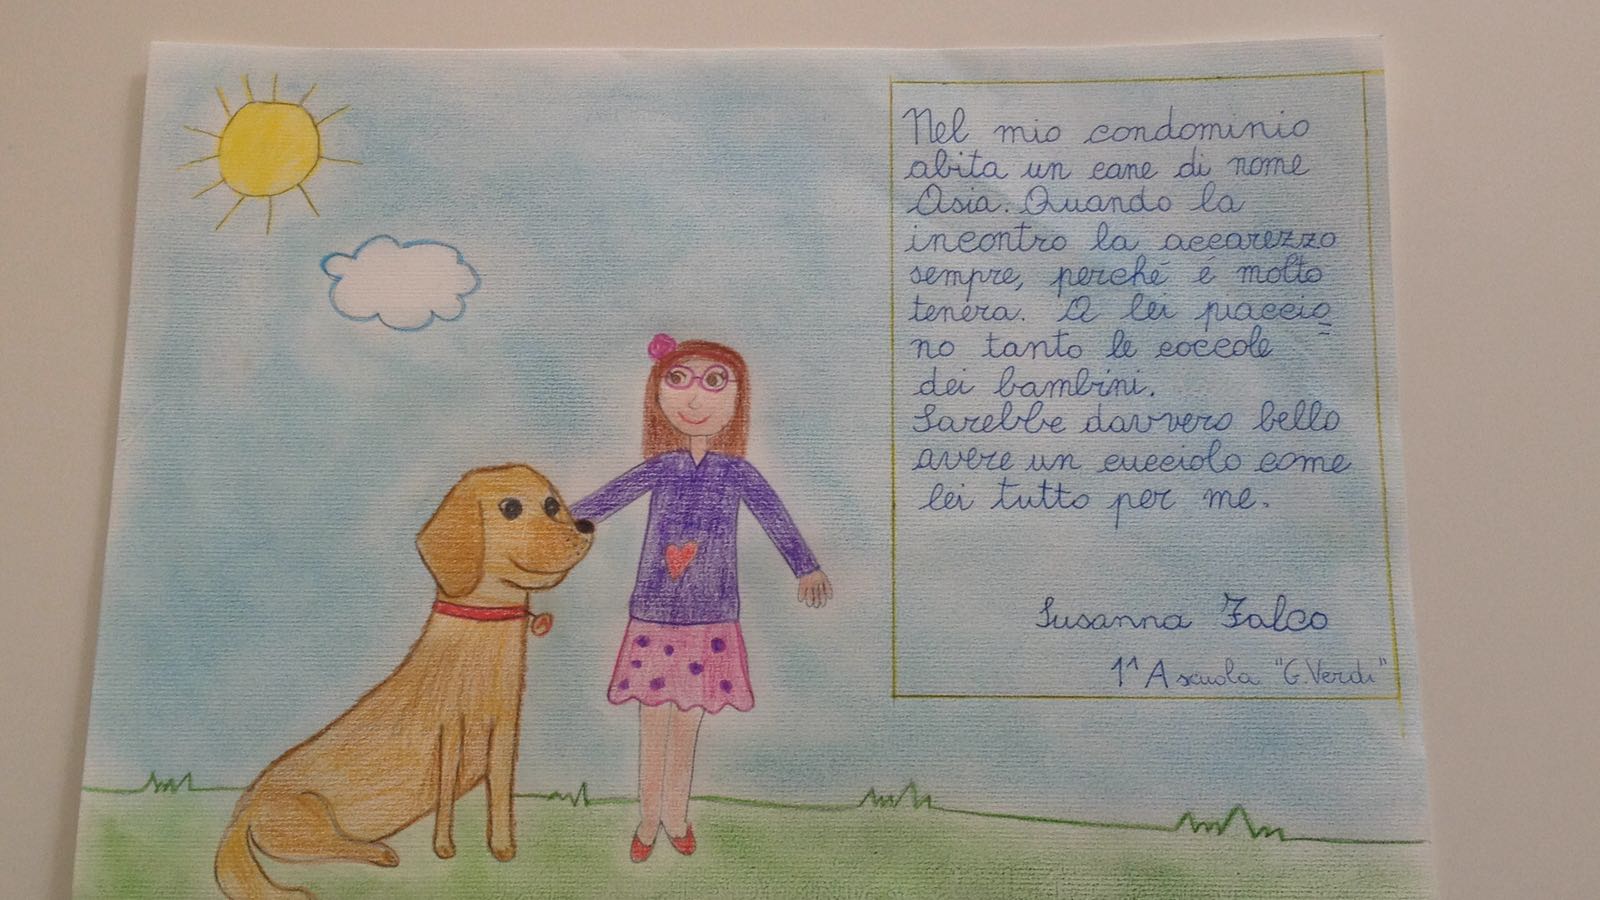 Nel mio condominio
abita un cane di nome
Asia. Quando la
incontro la accarezzo
sempre, perché é molto
tenera. A lei piaccio
no tanto le coccole
dei bambini.
Sarebbe davvero bello
avere un cucciolo come
lei tutto per me.
Susanna Falco
1^ A scuola "G. Verdi"